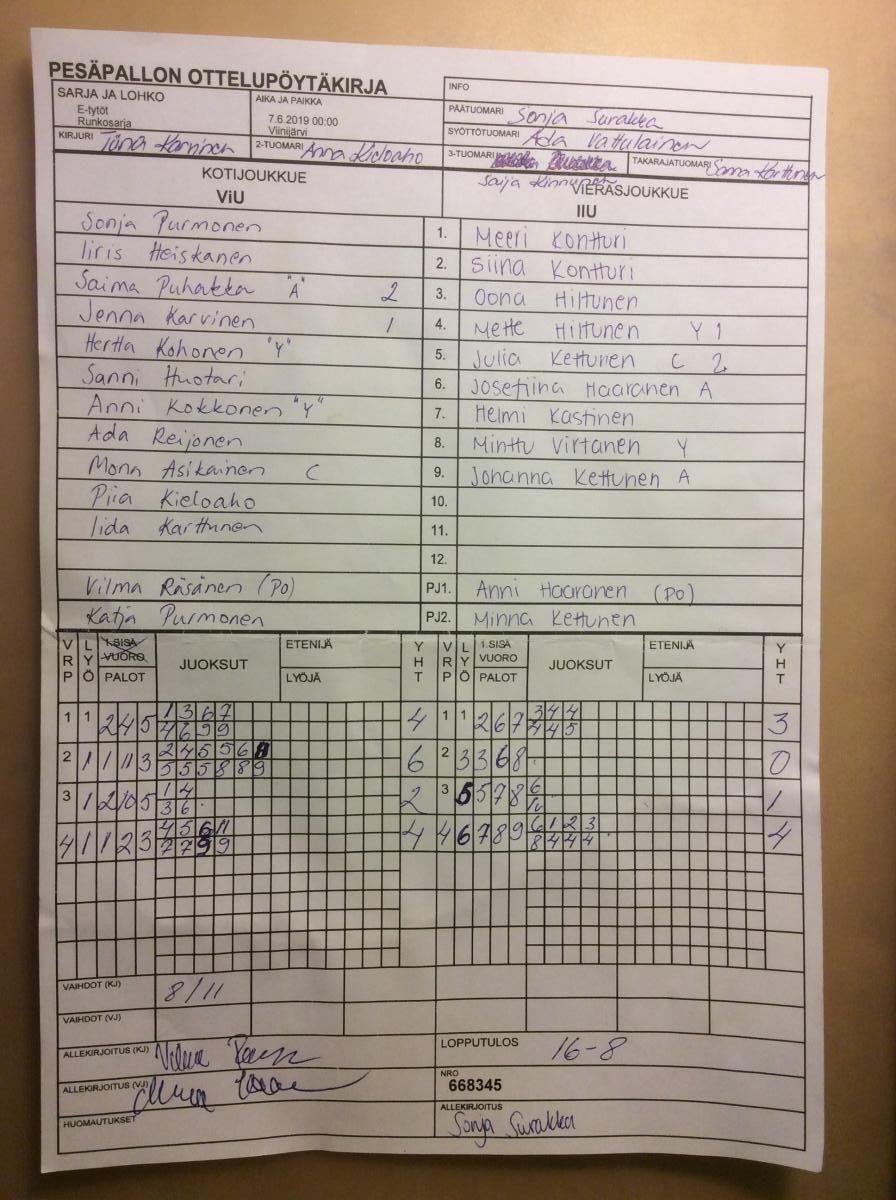 PESÄPALLON OTTELUPÖYTÄKIRJA
SARJA JA LOHKO
E-tytöt
Runkosarja
AIKA JA PAIKKA
7.6.2019 00:00
Viinijärvi
INFO
PÄÄTUOMARI Sonja Surakka
SYÖTTÖTUOMARI Ada Vattulainen
KIRJURI Karvinen
2-TUOMARI Anna Kieloaho
3-TUOMARI Saija Kinnunen
TAKARAJATUOMARI Sanna Karttunen
KOTIJOUKKUE
ViU
VIERASJOUKKUE
IIU
Sonja Purmonen 1. Meeri Kontturi
Iiris Heiskanen 2. Siina Kontturi
Saima Puhakka "A" 2 3. Oona Hiltunen
Jenna Karvinen 1 4. Mette Hiltunen Y 1
Hertta Kohonen "Y" 5. Julia Kettunen C 2
Sanni Huotari 6. Josefiina Haaranen A
Anni Kokkonen "Y" 7. Helmi Kastinen
Ada Reijonen 8. Minttu Virtanen Y
Mona Asikainen C 9. Johanna Kettunen A
Piia Kieloaho 10.
Iida Karttunen 11.
12.
Vilma Räsänen (PO) PJ1. Anni Haaranen (PO)
Katja Purmonen PJ2. Minna Kettunen
VRP LYÖ 1.SISÄ VUORO PALOT JUOKSUT ETENIJÄ LYÖJÄ YHT VRP LYÖ 1.SISÄ VUORO PALOT JUOKSUT ETENIJÄ LYÖJÄ YHT
1 3 6 7 3 4 4
1 1 2 4 5 4 1 1 2 6 7 3
4 6 9 9 4 4 5
2 4 5 5 6 8
2 1 1 11 3 6 2 3 3 6 8 0
5 5 5 8 8 9
1 4 6
3 1 2 10 5 2 3 5 5 7 8 1
3 6
4 5 6 11 6 1 2 3
4 1 1 2 3 4 4 6 7 8 9 4
7 7 9 9 8 4 4 4
VAIHDOT (KJ) 8/11
VAIHDOT (VJ)
ALLEKIRJOITUS (KJ)
LOPPUTULOS 16-8
ALLEKIRJOITUS (VJ)
NRO
668345
HUOMAUTUKSET
ALLEKIRJOITUS
Sonja Surakka